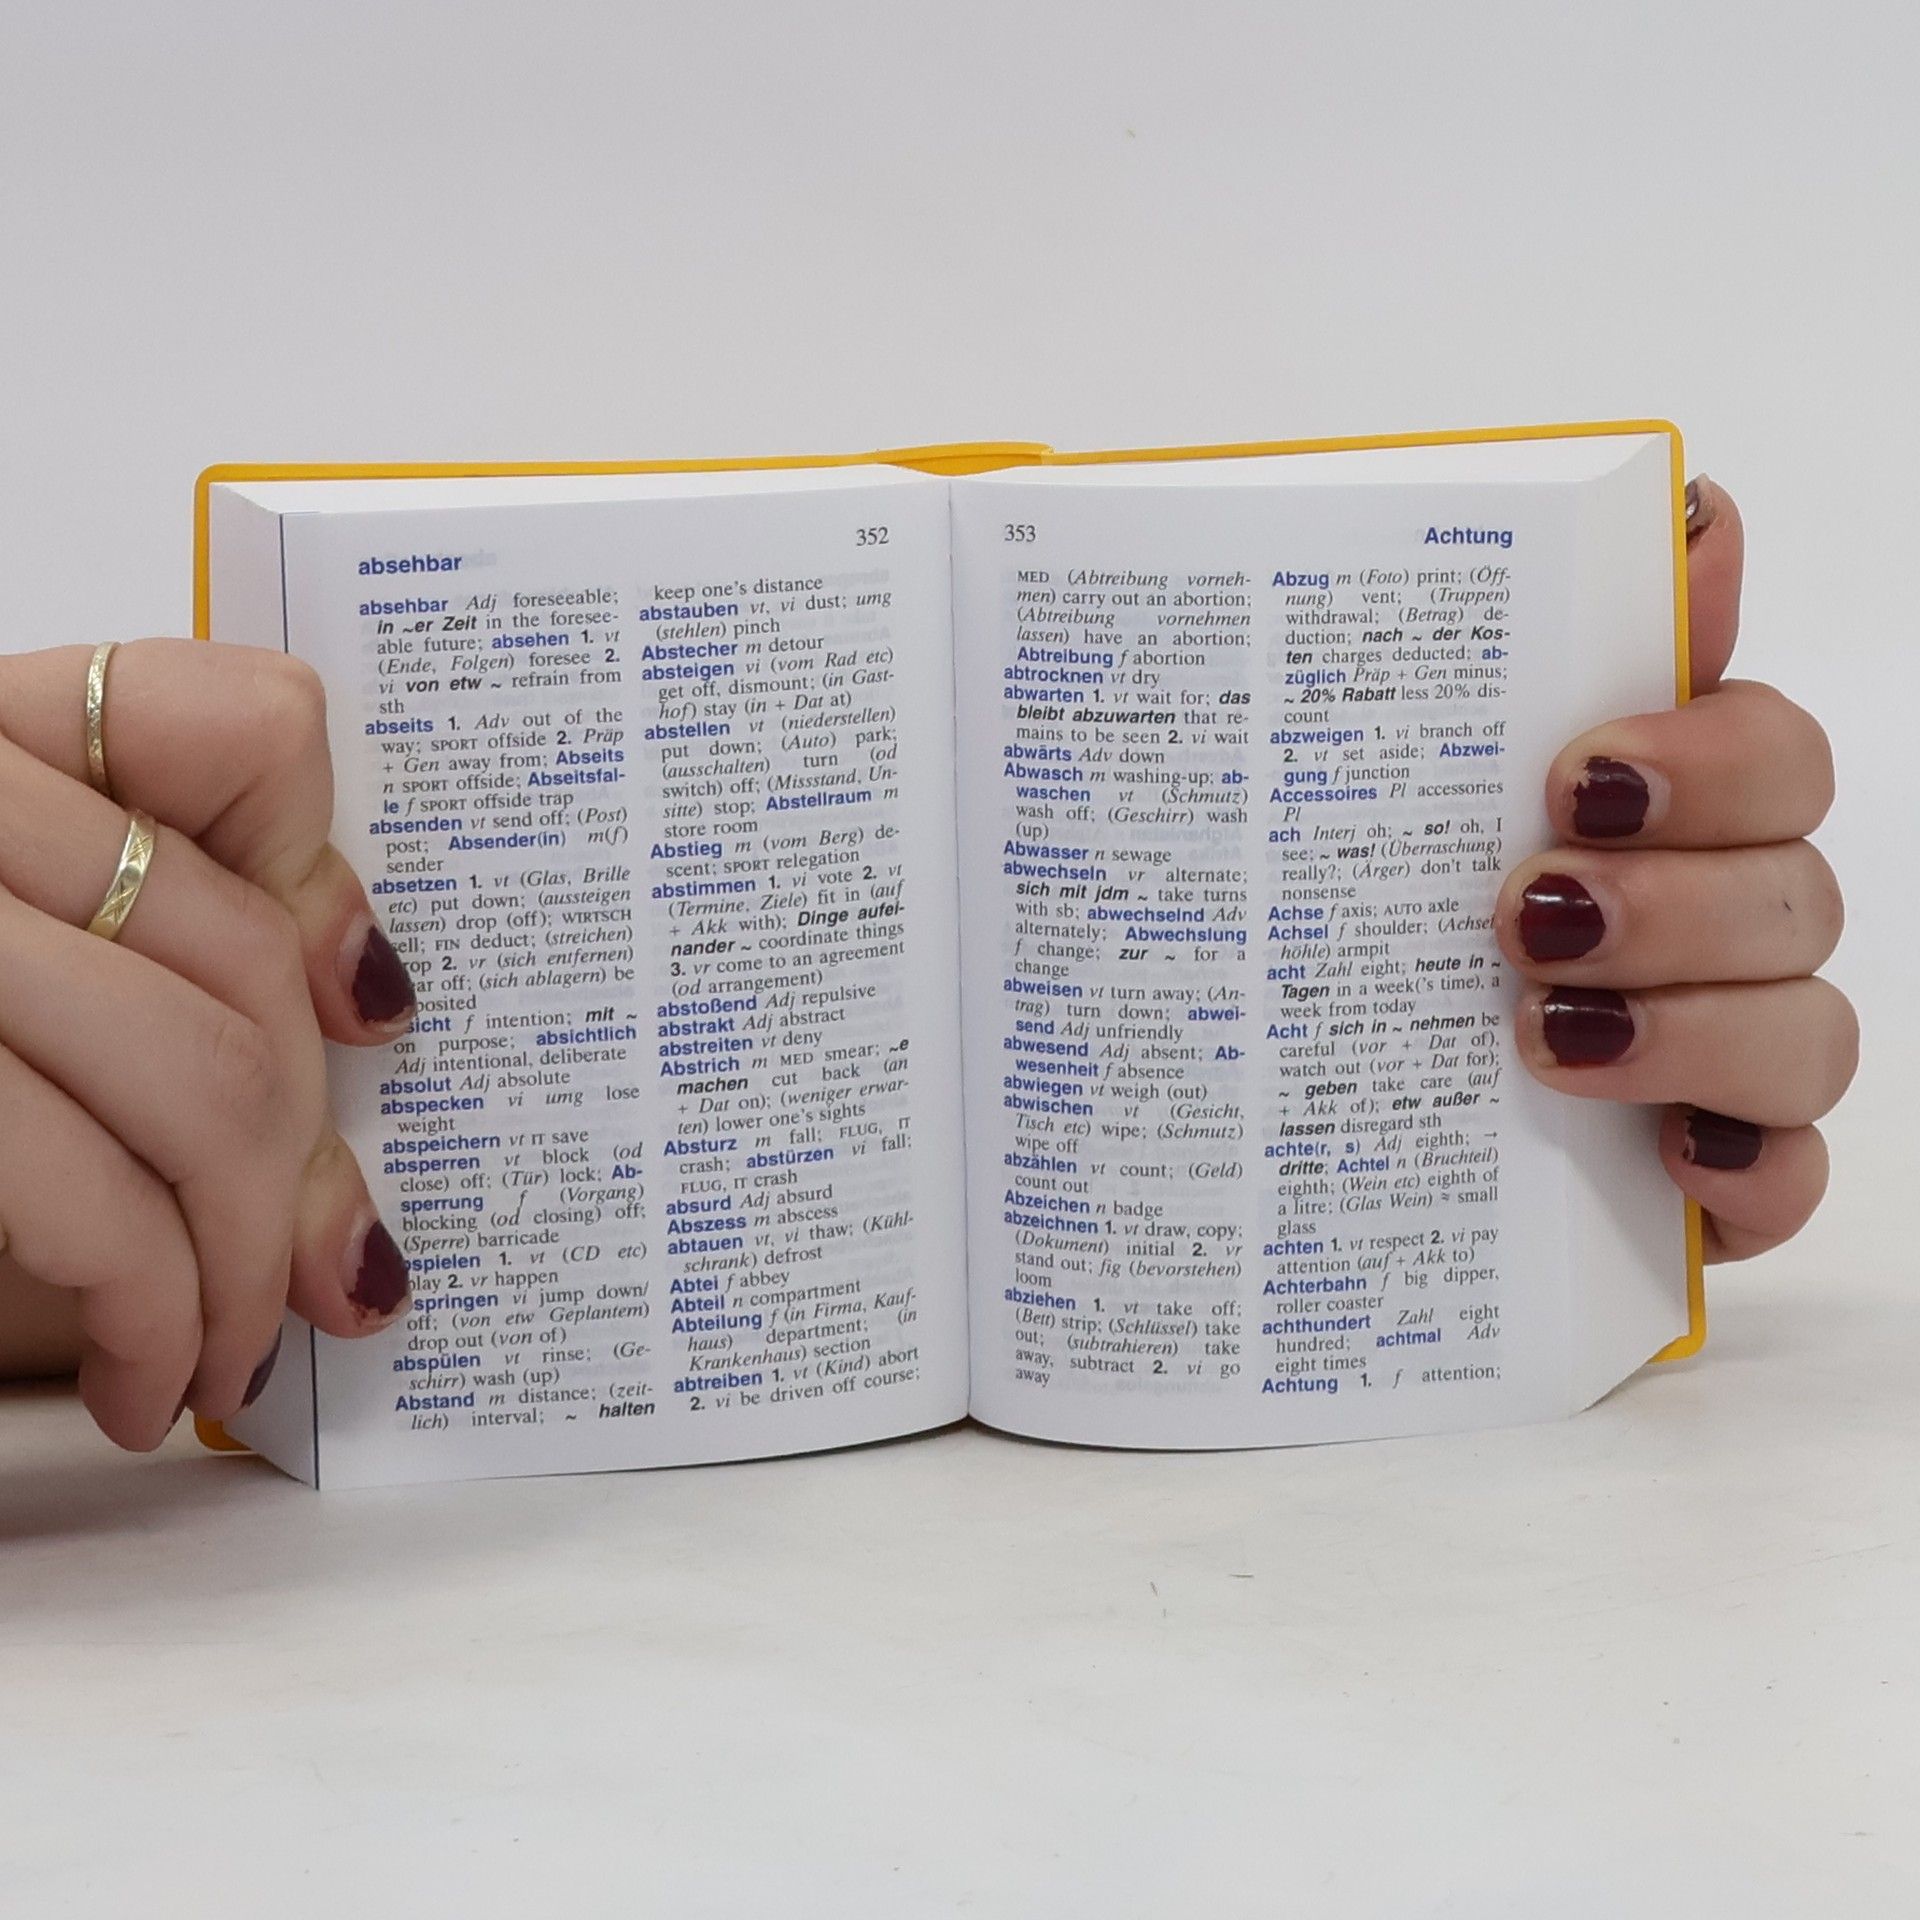 352
absehbar
absehbar Adj foreseeable;
in ~er Zeit in the foresee-
able future; absehen 1. vt
(Ende, Folgen) foresee 2.
vi von etw ~ refrain from
sth
abseits 1. Adv out of the
way; SPORT offside 2. Präp
+ Gen away from; Abseits
n SPORT offside; Abseitsfal-
le f SPORT offside trap
absenden vt send off; (Post)
post; Absender(in) m(f)
sender
absetzen 1. vt (Glas, Brille
etc) put down; (aussteigen
lassen) drop (off); WIRTSCH
sell; FIN deduct; (streichen)
rop 2. vr (sich entfernen)
ar off; (sich ablagern) be
posited
sicht f intention; mit ~
on purpose; absichtlich
Adj intentional, deliberate
absolut Adj absolute
abspecken vi umg lose
weight
abspeichern vt IT save
absperren vt block (od
close) off; (Tür) lock; Ab-
sperrung f (Vorgang)
blocking (od closing) off;
(Sperre) barricade
spielen 1. vt (CD etc)
play 2. vr happen
springen vi jump down/
off; (von etw Geplantem)
drop out (von of)
abspülen vt rinse; (Ge-
schirr) wash (up)
Abstand m distance; (zeit-
lich) interval; ~ halten
keep one's distance
abstauben vt, vi dust; umg
(stehlen) pinch
Abstecher m detour
absteigen vi (vom Rad etc)
get off, dismount; (in Gast-
hof) stay (in + Dat at)
abstellen vt (niederstellen)
put down; (Auto) park;
(ausschalten) turn (od
switch) off; (Missstand, Un-
sitte) stop; Abstellraum m
store room
Abstieg m (vom Berg) de-
scent; SPORT relegation
abstimmen 1. vi vote 2. vt
(Termine, Ziele) fit in (auf
+ Akk with); Dinge aufei-
nander ~ coordinate things
3. vr come to an agreement
(od arrangement)
abstoßend Adj repulsive
abstrakt Adj abstract
abstreiten vt deny
Abstrich m MED smear; ~e
machen cut back (an
+ Dat on); (weniger erwar-
ten) lower one's sights
Absturz m fall; FLUG, IT
crash; abstürzen vi fall;
FLUG, IT crash
absurd Adj absurd
Abszess m abscess
abtauen vt, vi thaw; (Kühl-
schrank) defrost
Abtei f abbey
Abteil n compartment
Abteilung f (in Firma, Kauf-
haus) department; (in
Krankenhaus) section
abtreiben 1. vt (Kind) abort
2. vi be driven off course;
353
Achtung
MED (Abtreibung vorneh-
men) carry out an abortion;
(Abtreibung vornehmen
lassen) have an abortion;
Abtreibung f abortion
abtrocknen vt dry
abwarten 1. vt wait for; das
bleibt abzuwarten that re-
mains to be seen 2. vi wait
abwärts Adv down
Abwasch m washing-up; ab-
waschen vt (Schmutz)
wash off; (Geschirr) wash
(up)
Abwasser n sewage
abwechseln vr alternate;
sich mit jdm ~ take turns
with sb; abwechselnd Adv
alternately; Abwechslung
f change; zur ~ for a
change
abweisen vt turn away; (An-
trag) turn down; abwei-
send Adj unfriendly
abwesend Adj absent; Ab-
wesenheit f absence
abwiegen vt weigh (out)
abwischen vt (Gesicht,
Tisch etc) wipe; (Schmutz)
wipe off
abzählen vt count; (Geld)
count out
Abzeichen n badge
abzeichnen 1. vt draw, copy;
(Dokument) initial 2. vr
stand out; fig (bevorstehen)
loom
abziehen 1. vt take off;
(Bett) strip; (Schlüssel) take
out; (subtrahieren) take
away, subtract 2. vi go
away
Abzug m (Foto) print; (Öff-
nung) vent; (Truppen)
withdrawal; (Betrag) de-
duction; nach ~ der Kos-
ten charges deducted; ab-
züglich Präp + Gen minus;
~ 20% Rabatt less 20% dis-
count
abzweigen 1. vi branch off
2. vt set aside; Abzwei-
gung f junction
Accessoires Pl accessories
Pl
ach Interj oh; ~ so! oh, I
see; ~ was! (Überraschung)
really?; (Ärger) don't talk
nonsense
Achse f axis; AUTO axle
Achsel f shoulder; (Achsel
höhle) armpit
acht Zahl eight; heute in ~
Tagen in a week('s time), a
week from today
Acht f sich in ~ nehmen be
careful (vor + Dat of),
watch out (vor + Dat for);
~ geben take care (auf
+ Akk of); etw außer ~
lassen disregard sth
achte(r, s) Adj eighth; →
dritte; Achtel n (Bruchteil)
eighth; (Wein etc) eighth of
a litre; (Glas Wein) ≈ small
glass
achten 1. vt respect 2. vi pay
attention (auf + Akk to)
Achterbahn f big dipper,
roller coaster
achthundert Zahl eight
hundred; achtmal Adv
eight times
Achtung 1. f attention;